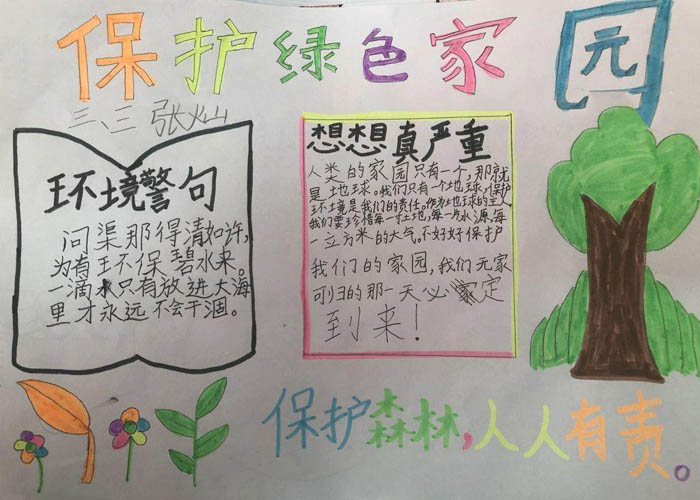 保护绿色家园
三、三 张灿
环境警句
问渠那得清如许,
为有环保碧水来。
一滴水只有放进大海
里才永远不会干涸。
想想真严重
人类的家园只有一个,那就
是地球。我们只有一个地球,保护
环境是我们的责任。作为地球的主人
我们要珍惜每一寸土地,每一片水源,每
一立方米的大气。不好好保护
我们的家园,我们无家
可归的那一天必定
到来!
保护森林,人人有责。